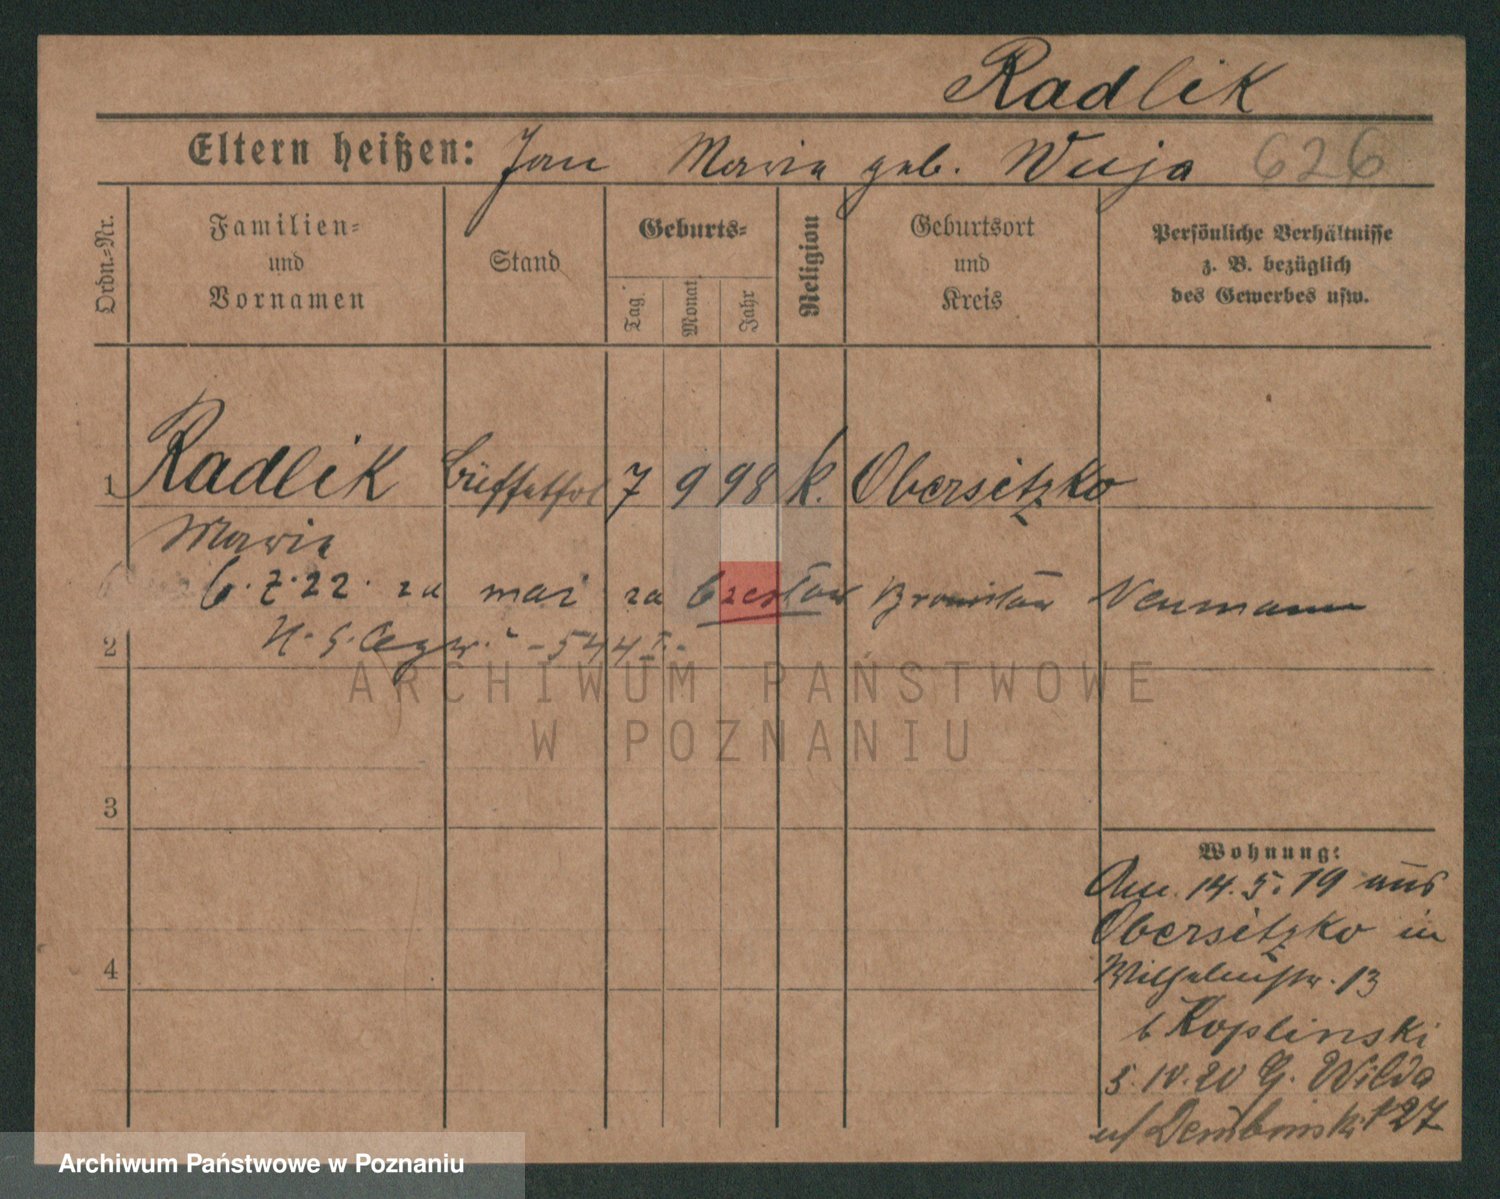 Radlik
Eltern heißen: Jan Marie geb. Wuja 626
Ordn.-Nr.
Familien-
und
Vornamen
Stand
Geburts-
Tag.
Monat
Jahr
Religion
Geburtsort
und
Kreis
Persönliche Verhältnisse
z. B. bezüglich
des Gewerbes usw.
1 Radlik Büffetfrl 7 9 98 k. Obersitzko
Marie
6.7.22. za mąż za Czesław Bronisław Neumann
- 544
2
3
4
Wohnung:
Am 14.5.19 aus
Obersitzko in
Wilhelmstr. 13
b Koplinski
5.10.20 G. Wilda
27
ARCHIWUM PAŃSTWOWE
W POZNANIU
Archiwum Państwowe w Poznaniu